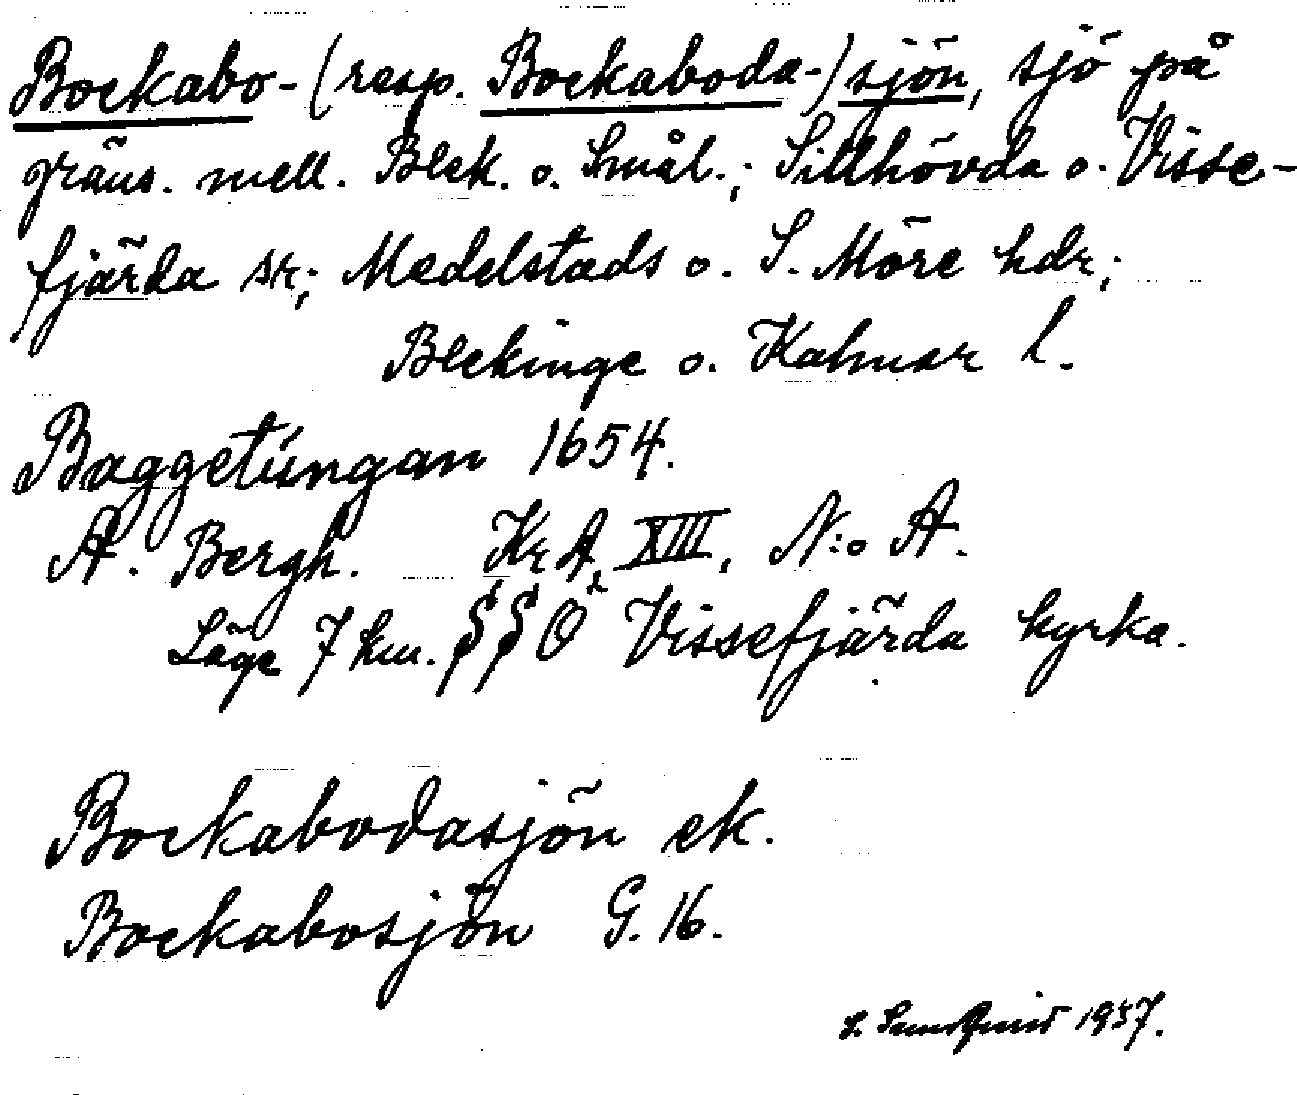 Bockabo-(resp. Bockaboda-)sjön, sjö på
gräns. mell. Blek. o. Smål.; Sillhövda o. Visse-
fjärda sr; Medelstads o. S. Möre hdr;
Blekinge o. Kalmar l.
Baggetúngan 1654.
A. Bergh. KrA, XIII, N:o A.
Läge 7 km. SSO Vissefjärda kyrka.
Bockabodasjön ek.
Bockabosjön G. 16.
1937.